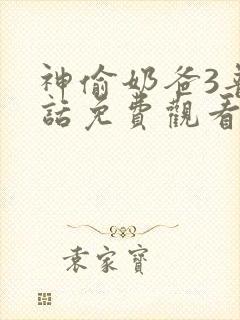 神偷奶爸3普
話免費觀看
袁家寶